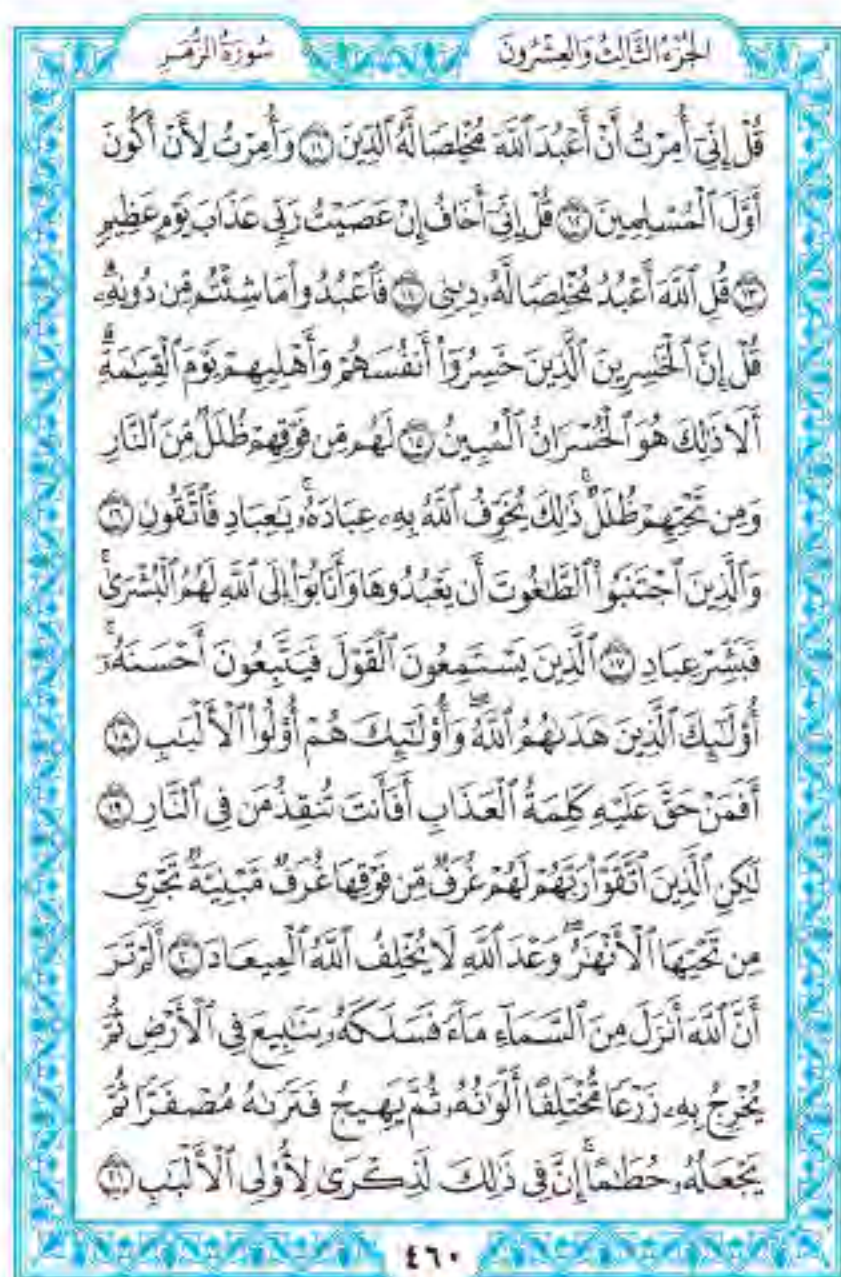 سُورَةُ الزُّمَرِ
الجُزْءُ الثَّالِثُ وَالعِشْرُونَ
قُلْ إِنِّيٓ أُمِرْتُ أَنْ أَعْبُدَ ٱللَّهَ مُخْلِصًا لَّهُ ٱلدِّينَ ١١ وَأُمِرْتُ لِأَنْ أَكُونَ
أَوَّلَ ٱلْمُسْلِمِينَ ١٢ قُلْ إِنِّيٓ أَخَافُ إِنْ عَصَيْتُ رَبِّي عَذَابَ يَوْمٍ عَظِيمٍ
١٣ قُلِ ٱللَّهَ أَعْبُدُ مُخْلِصًا لَّهُۥ دِينِي ١٤ فَٱعْبُدُوا۟ مَا شِئْتُم مِّن دُونِهِۦۗ
قُلْ إِنَّ ٱلْخَٰسِرِينَ ٱلَّذِينَ خَسِرُوٓا۟ أَنفُسَهُمْ وَأَهْلِيهِمْ يَوْمَ ٱلْقِيَٰمَةِۗ
أَلَا ذَٰلِكَ هُوَ ٱلْخُسْرَانُ ٱلْمُبِينُ ١٥ لَهُم مِّن فَوْقِهِمْ ظُلَلٌ مِّنَ ٱلنَّارِ
وَمِن تَحْتِهِمْ ظُلَلٌۚ ذَٰلِكَ يُخَوِّفُ ٱللَّهُ بِهِۦ عِبَادَهُۥۚ يَٰعِبَادِ فَٱتَّقُونِ ١٦
وَٱلَّذِينَ ٱجْتَنَبُوا۟ ٱلطَّٰغُوتَ أَن يَعْبُدُوهَا وَأَنَابُوٓا۟ إِلَى ٱللَّهِ لَهُمُ ٱلْبُشْرَىٰۚ
فَبَشِّرْ عِبَادِ ١٧ ٱلَّذِينَ يَسْتَمِعُونَ ٱلْقَوْلَ فَيَتَّبِعُونَ أَحْسَنَهُۥٓۚ
أُو۟لَٰٓئِكَ ٱلَّذِينَ هَدَىٰهُمُ ٱللَّهُۖ وَأُو۟لَٰٓئِكَ هُمْ أُو۟لُوا۟ ٱلْأَلْبَٰبِ ١٨
أَفَمَنْ حَقَّ عَلَيْهِ كَلِمَةُ ٱلْعَذَابِ أَفَأَنتَ تُنقِذُ مَن فِي ٱلنَّارِ ١٩
لَٰكِنِ ٱلَّذِينَ ٱتَّقَوْا۟ رَبَّهُمْ لَهُمْ غُرَفٌ مِّن فَوْقِهَا غُرَفٌ مَّبْنِيَّةٌ تَجْرِي
مِن تَحْتِهَا ٱلْأَنْهَٰرُۖ وَعْدَ ٱللَّهِ لَا يُخْلِفُ ٱللَّهُ ٱلْمِيعَادَ ٢٠ أَلَمْ تَرَ
أَنَّ ٱللَّهَ أَنزَلَ مِنَ ٱلسَّمَآءِ مَآءً فَسَلَكَهُۥ يَنَٰبِيعَ فِي ٱلْأَرْضِ ثُمَّ
يُخْرِجُ بِهِۦ زَرْعًا مُّخْتَلِفًا أَلْوَٰنُهُۥ ثُمَّ يَهِيجُ فَتَرَىٰهُ مُصْفَرًّا ثُمَّ
يَجْعَلُهُۥ حُطَٰمًاۚ إِنَّ فِي ذَٰلِكَ لَذِكْرَىٰ لِأُو۟لِي ٱلْأَلْبَٰبِ ٢١
٤٦٠